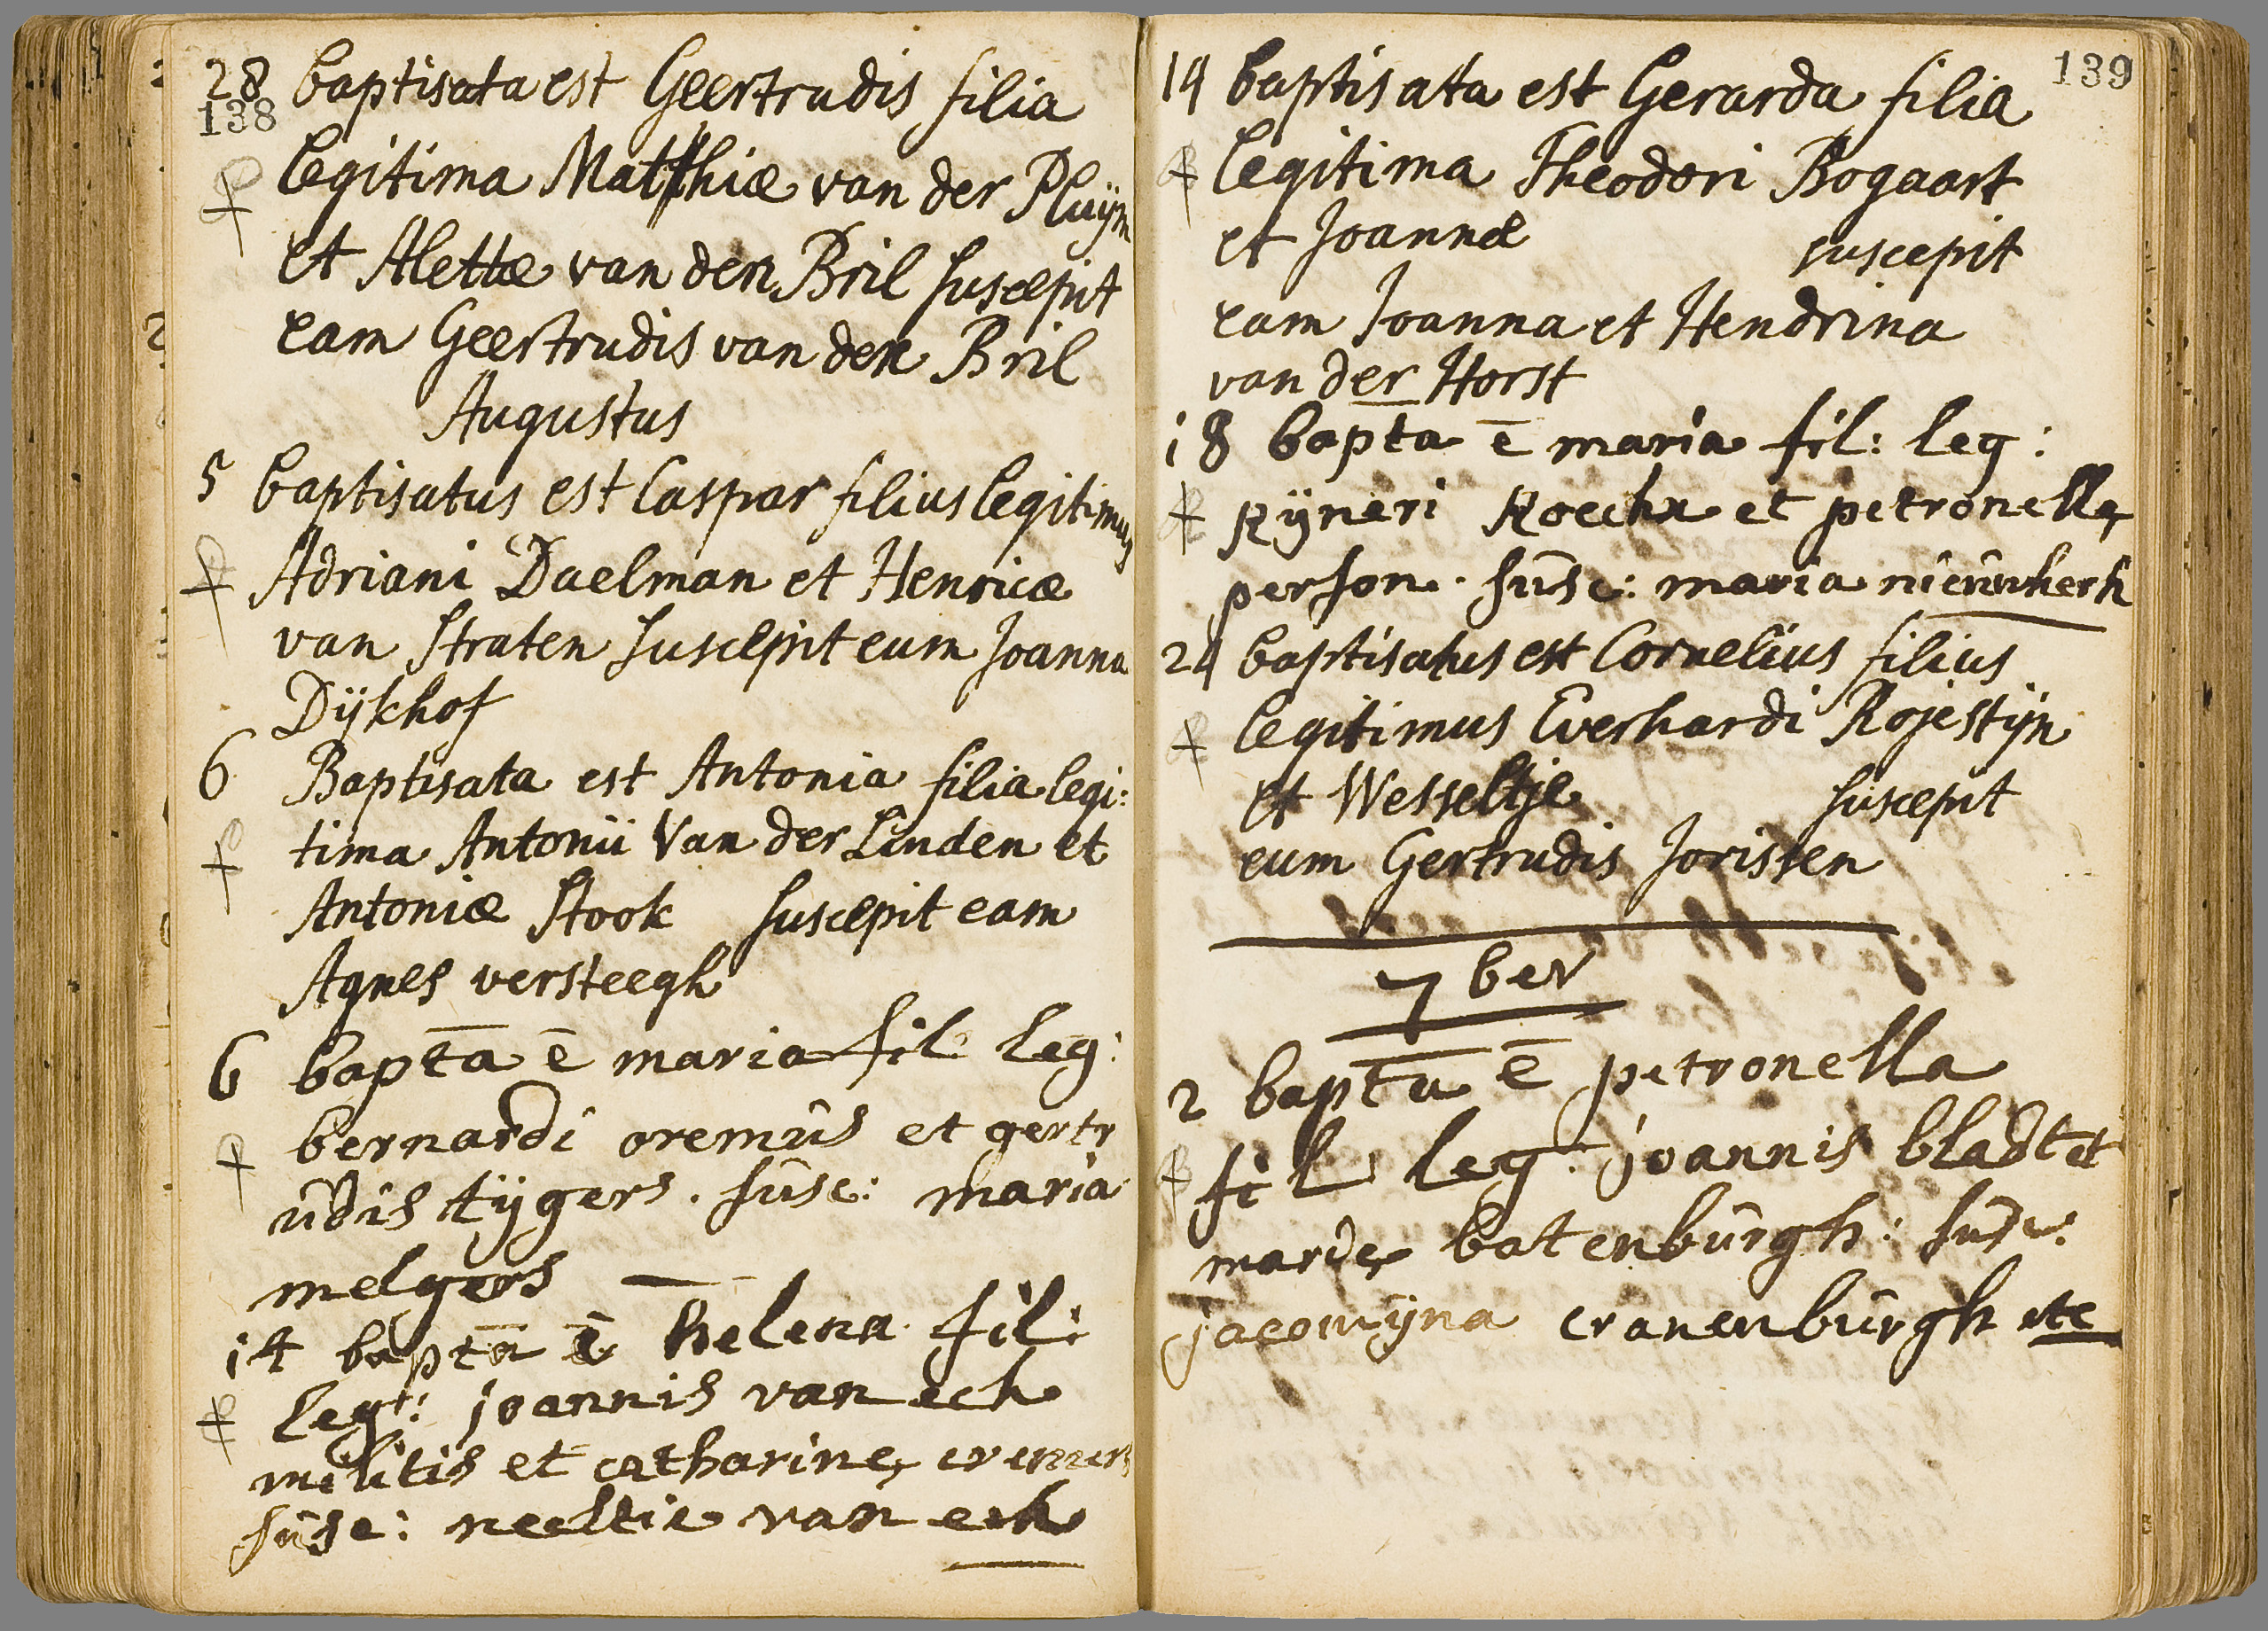 28 baptisata est Geertrudis filia
138
legitima Matthiæ van der Pluijm
et Alettæ van den Bril suscepit
eam Geertrudis van den Bril
Augustus
5 baptisatus est Caspar filius legitimus
Adriani Daelman et Henricæ
van Straten suscepit eum Joanna
Dijkhof
6 Baptisata est Antonia filia legi:
tima Antonii Van der Linden et
Antoniæ Stook suscepit eam
Agnes versteegh
6 bapta ē maria fil leg:
bernardi oremus et gertr
udis tijgers. susc: maria
melgers
14 bapta ē helena fil:
leg: joannis van ech
militis et catharine
susc: neeltie van ech
139
14 baptisata est Gerarda filia
legitima Theodori Bogaart
et Joannæ suscepit
eam Joanna et Hendrina
van der Horst
18 bapta ē maria fil: leg:
Rijneri et petronellę
person. susc: maria nieuwkerk
24 baptisatus est Cornelius filius
legitimus Everhardi Rojestijn
et Wesseltje suscepit
eum Gertrudis Jorissen
7 ber
2 bapta ē petronella
fil leg: joannis bladt et
batenburgh: susc:
jacomijna cranenburgh etc